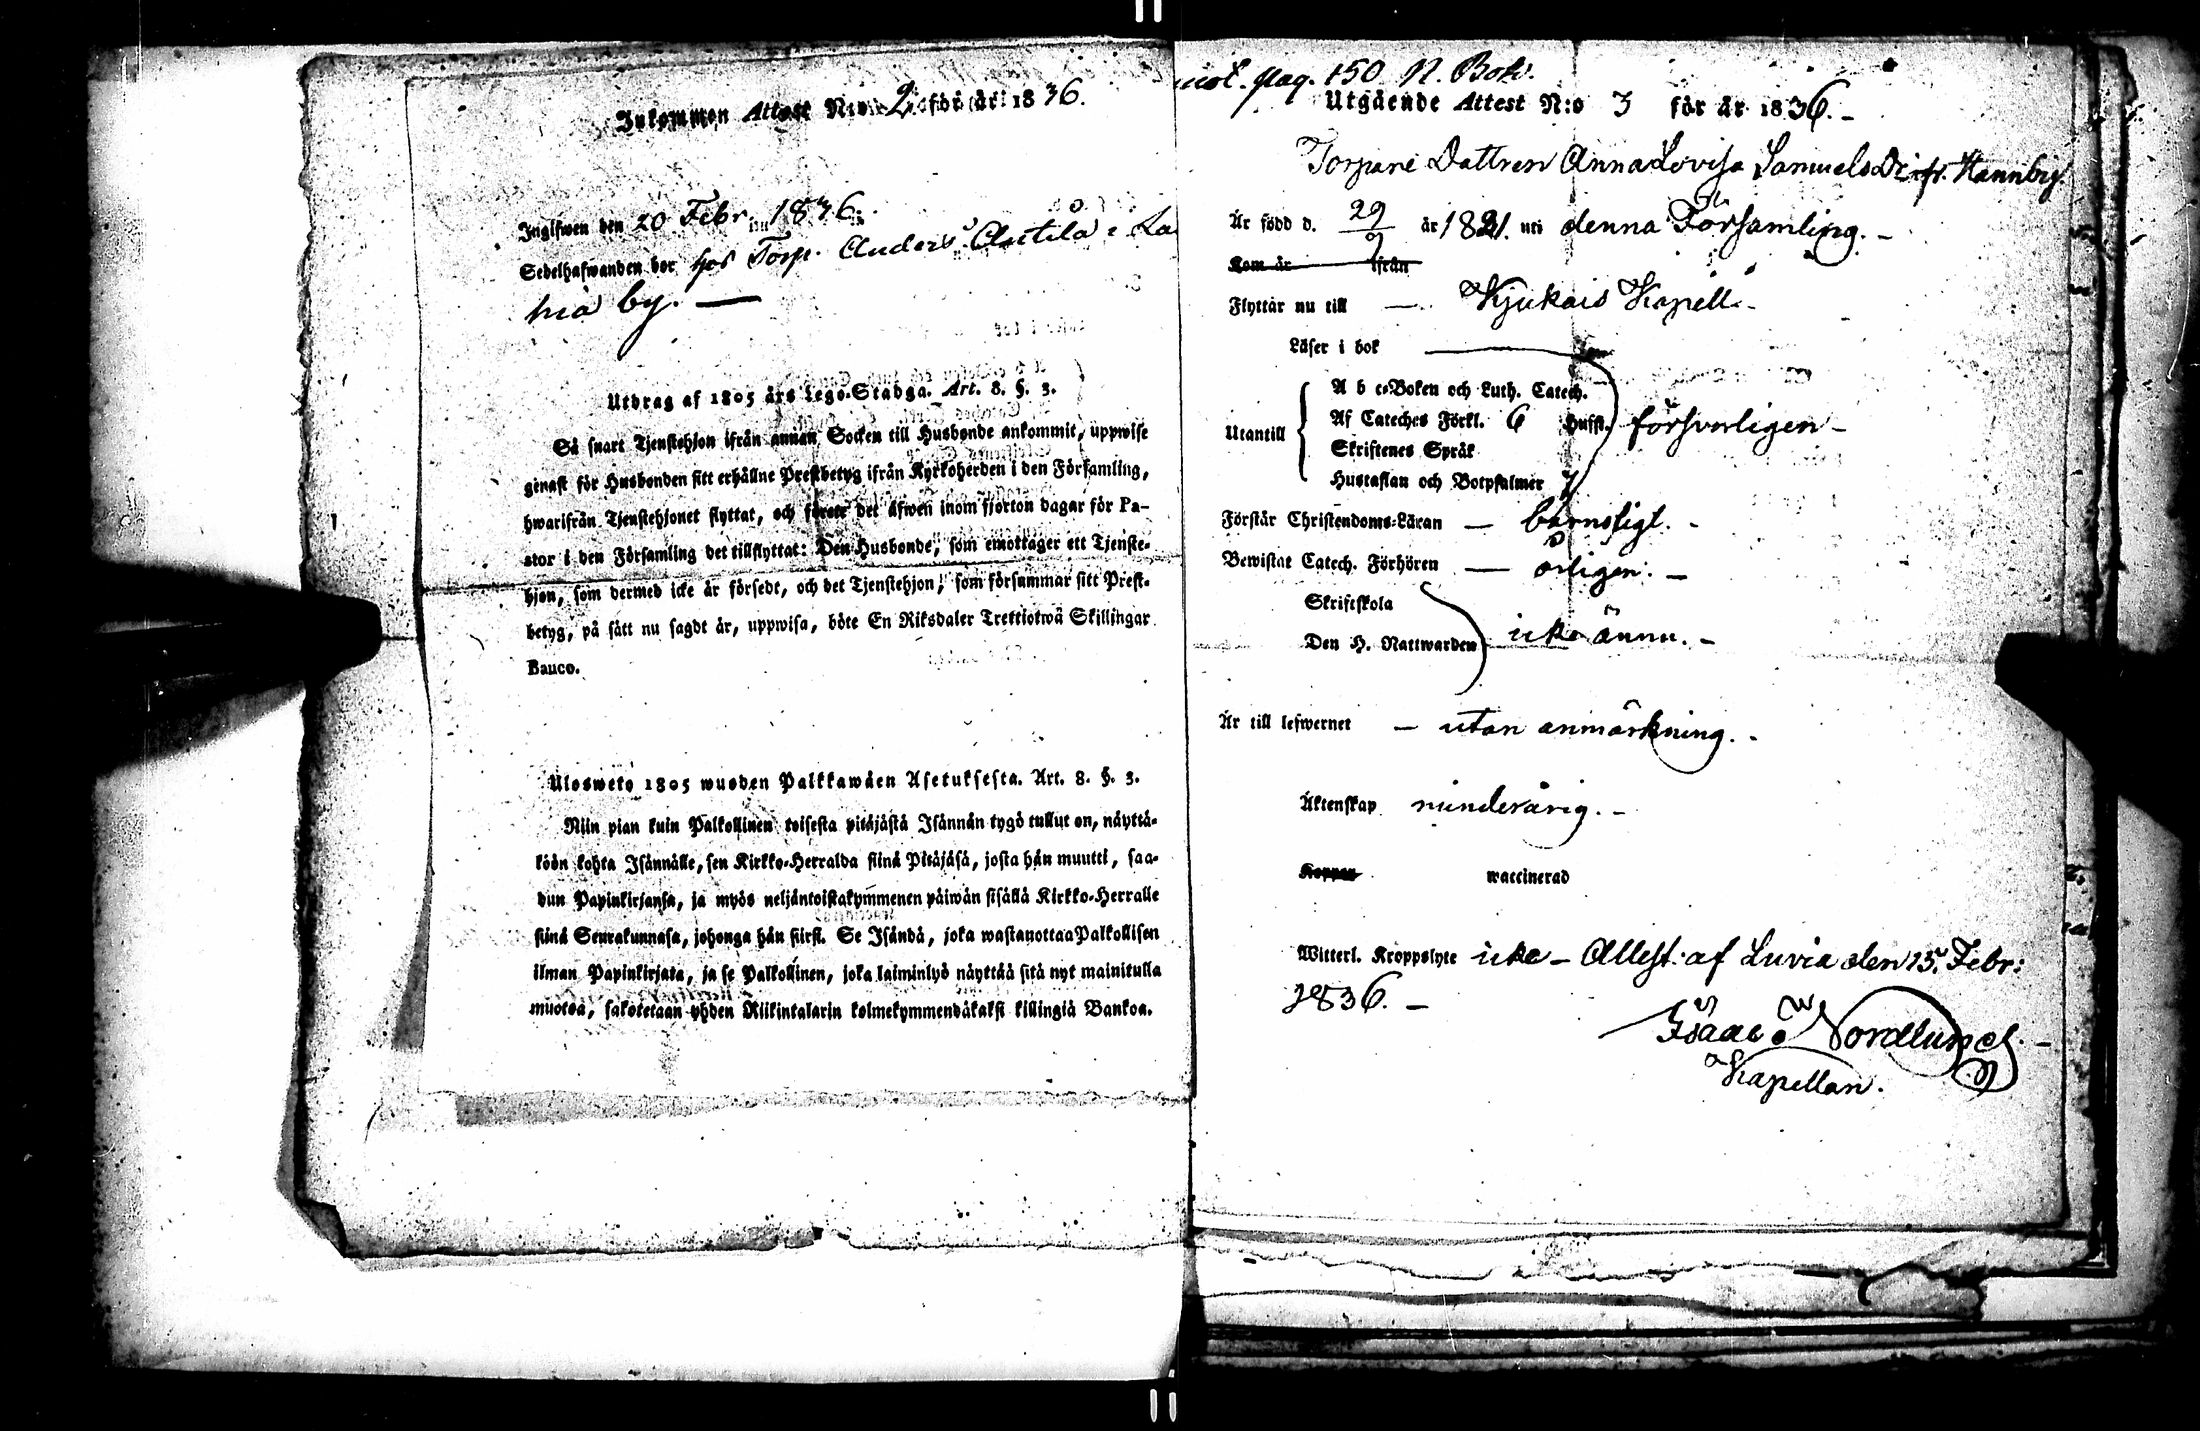 Inkommen Attest N:o 2 för år 1836.
Inglfwen den 20 Febr. 1836.
Sedelhafwanden bor hos Torp. Anders Anttila i La
hia by. —
Utdrag af 1805 års Lego-Stadga. Art. 8. §. 3.
Så snart Tjenstehjon ifrån annan Socken till Husbonde ankommit, uppwise
genast för Husbonden sitt erhållne Prestbetyg ifrån Kyrkoherden i den Församling,
hwarifrån Tjenstehjonet flyttat, och förete det äfwen inom fjorton dagar för Pa-
stor i den Församling det tillflyttat: Den Husbonde, som emottager ett Tjenste-
hjon, som dermed icke är försedt, och det Tjenstehjon, som försummar sitt Prest-
betyg, på sått nu sagdt är, uppwisa, böte En Riksdaler Trettiotwå Skillingar
Banco.
Ulosweto 1805 wuoden Palkkawäen Asetuksesta. Art. 8. §. 3.
Niin pian kuin Palkollinen toisesta pitäjästä Isännän tygö tullut on, näyttä-
köön kohta Isännälle, sen Kirkko-Herralda siinä Pitäjäsä, josta hän muutti, saa-
dun Papinkirjansa, ja myös neljäntoistakymmenen päiwän sisällä Kirkko-Herralle
siinä Seurakunnasa, johonga hän siirst. Se Isändä, joka wastanottaa Palkollisen
ilman Papinkirjata, ja se Palkollinen, joka laiminlyö näyttää sitä nyt mainitulla
muotoa, sakotetaan yhden Riikintalarin kolmekymmendäkaksi killingiä Bankoa.
pag. 150 N. Bok.
Utgående Attest N:o 3 för år 1836. -
Torpare Dottren Anna Lovisa Samuels Dr fr. Hannby.
Är född d. 29/9 år 1821. uti denna Församling. -
Kom år ifrån
Flyttår nu till — Kjukais Kapell. -
Läser i bok —
A b c-Boken och Luth. Catech.
Utantill Af Cateches Förkl. 6 Hufst. försvarligen -
Skriftenes Språk
Hustaflan och Botpsalmer 7
Förstår Christendoms-Läran — barnsligt. -
Bewistat Catech. Förhören — årligen. -
Skriftskola
Den H. Nattwarden icke ännu. -
Är till lefwernet — utan anmärkning. -
Äktenskap minderårig. -
Koppor waccinerad
Witterl. Kroppslyte icke - Attest. af Luvia den 15. Febr:
1836. -
Isaac Nordlund. -
Kapellan.